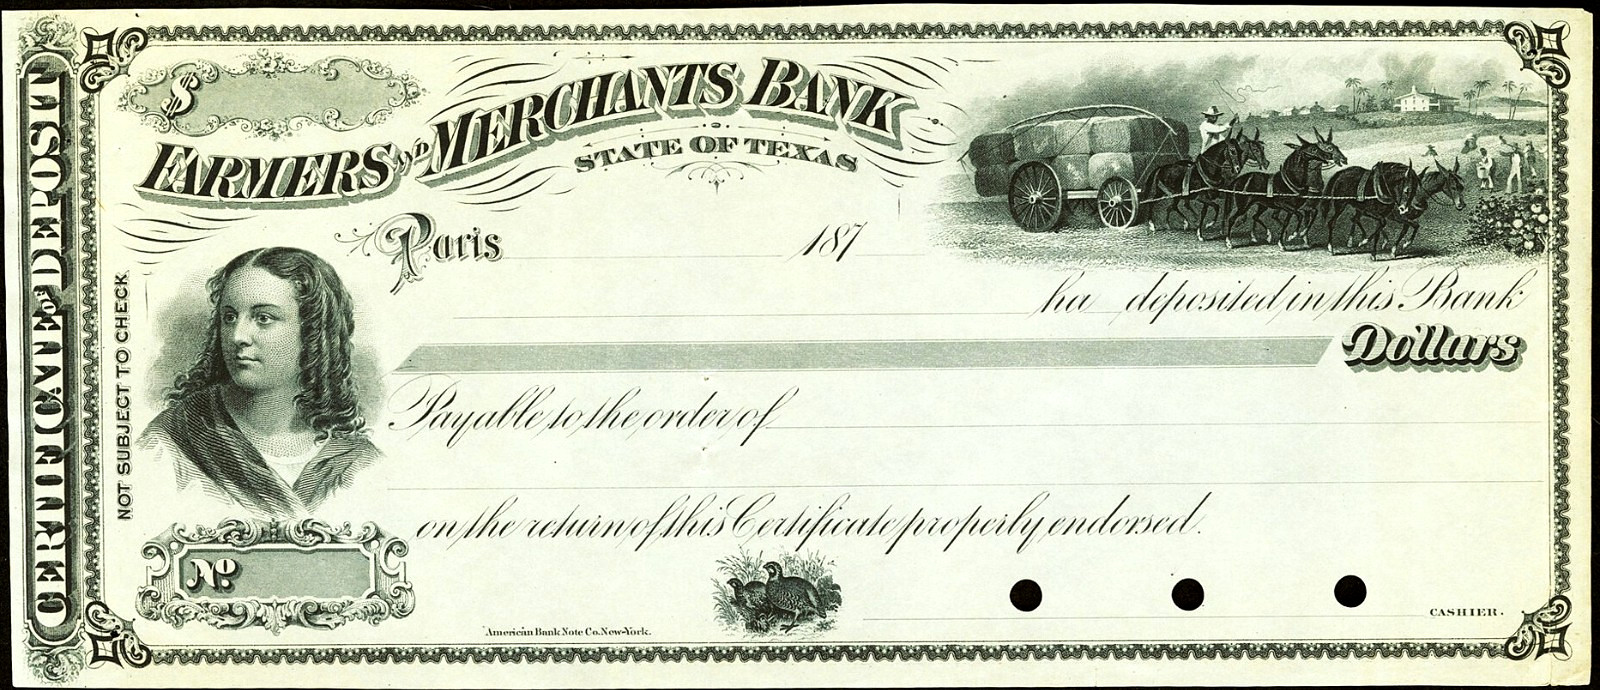 CERTIFICATE OF DEPOSIT
NOT SUBJECT TO CHECK
$
FARMERS AND MERCHANTS BANK
STATE OF TEXAS
Paris 187
ha deposited in this Bank
Dollars
Payable to the order of
on the return of this Certificate properly endorsed.
No
CASHIER.
American Bank Note Co. New-York.